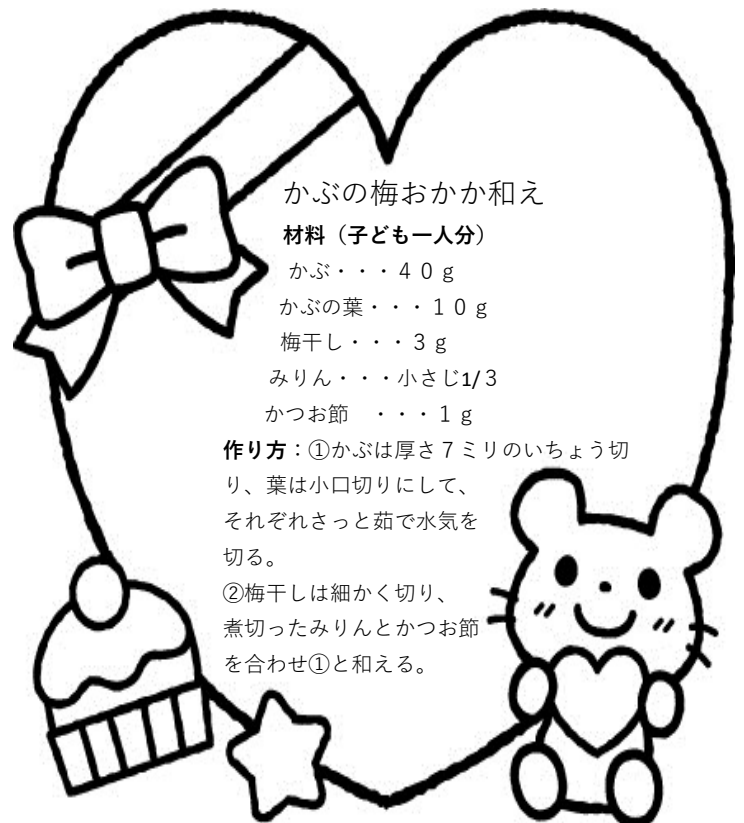 かぶの梅おかか和え
材料（子ども一人分）
かぶ・・・４０ｇ
かぶの葉・・・１０ｇ
梅干し・・・３ｇ
みりん・・・小さじ1/３
かつお節　・・・１ｇ
作り方：①かぶは厚さ７ミリのいちょう切
り、葉は小口切りにして、
それぞれさっと茹で水気を
切る。
②梅干しは細かく切り、
煮切ったみりんとかつお節
を合わせ①と和える。